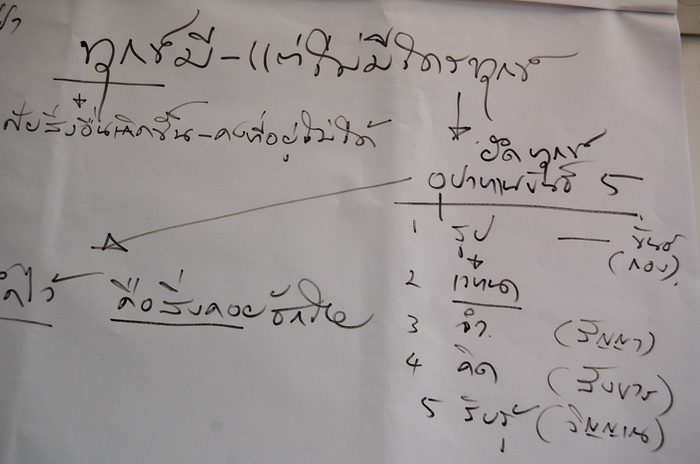 ทุกข์มี-แต่ไม่มีใครทุกข์
อาศัยสิ่งอื่นเกิดขึ้น-คงที่อยู่ไม่ได้
ยึดทุกข์
อุปาทานขันธ์ 5
1 รูป — ขันธ์
(กอง)
2 เวทนา
คือสิ่งคอย
3 จำ (สัญญา)
4 คิด (สังขาร)
5 รับรู้ (วิญญาณ)